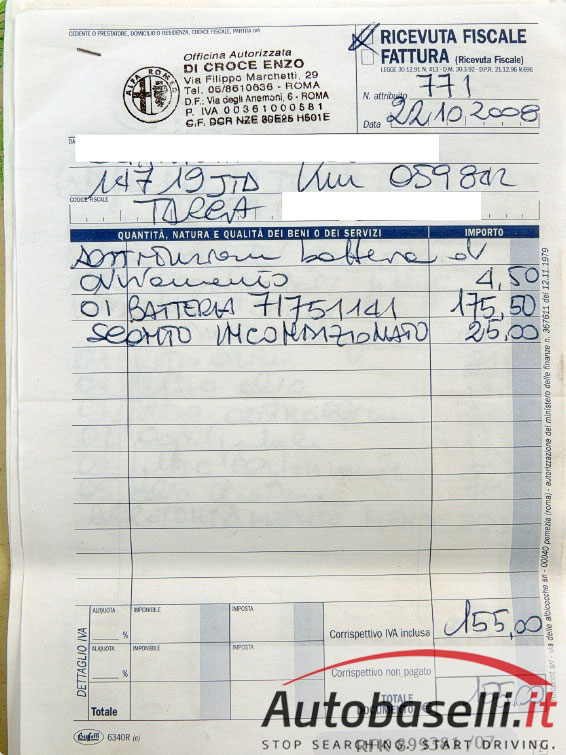 CEDENTE O PRESTATORE, DOMICILIO O RESIDENZA, CODICE FISCALE, PARTITA IVA
RICEVUTA FISCALE
FATTURA (Ricevuta Fiscale)
LEGGE 30.12.91 N. 413 - D.M. 30.3.92 - D.P.R. 21.12.96 N.696
ALFA ROMEO
Officina Autorizzata
DI CROCE ENZO
Via Filippo Marchetti, 29
Tel. 06/8610636 - ROMA
D.F.: Via degli Anemoni, 6 - ROMA
P. IVA 00361000581
C.F. DCR NZE 39E25 H501E
N. attribuito 771
Data 22.10.2008
147 19 JTD Km
CODICE FISCALE
TARGA
QUANTITÀ, NATURA E QUALITÀ DEI BENI O DEI SERVIZI IMPORTO
batteria di
avviamento 4,50
01 BATTERIA 71751141 175,50
SCONTO INCONDIZIONATO 25,00
DETTAGLIO IVA
ALIQUOTA IMPONIBILE IMPOSTA
%
Corrispettivo IVA inclusa 155,00
ALIQUOTA IMPONIBILE IMPOSTA
%
Corrispettivo non pagato
Totale
TOTALE
Buffetti 6340R (e)
autorizzazione del ministero delle finanze n. 367611 del 12.11.1979
via delle albicocche snc - 00040 pomezia (roma)
Autobaselli.it
STOP SEARCHING. START DRIVING.